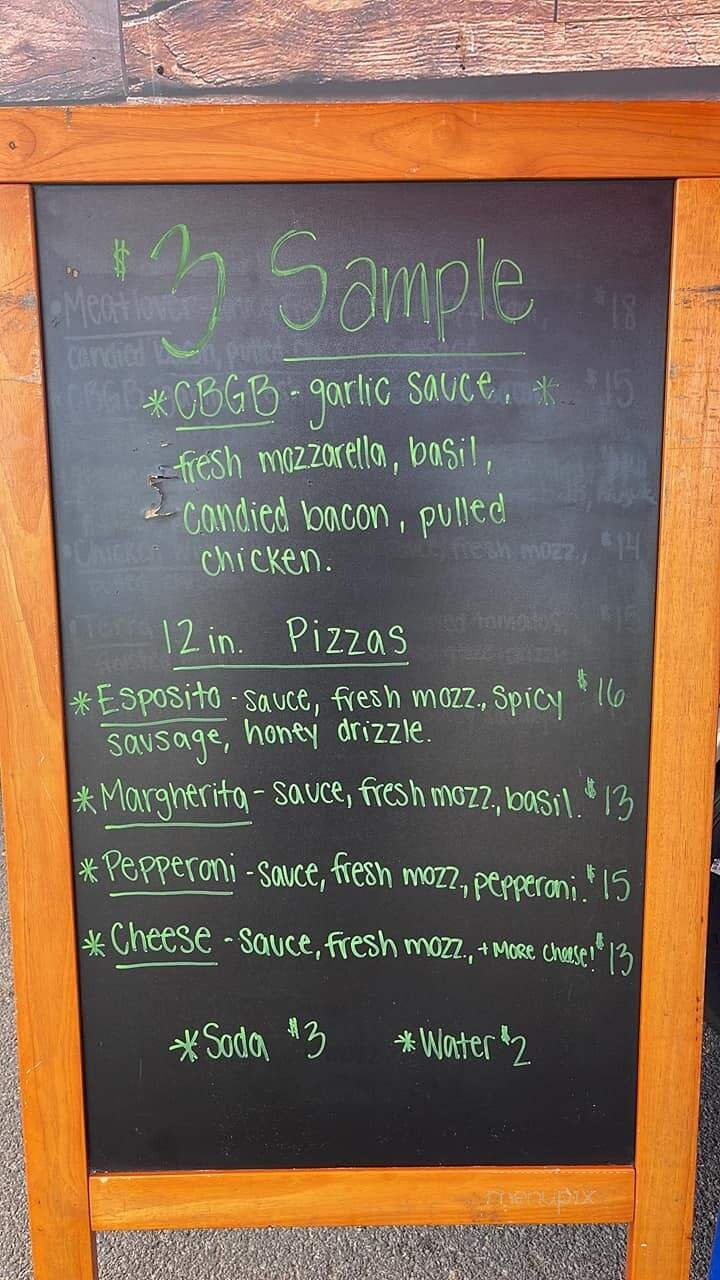 $3 Sample
*CBGB - garlic sauce, *
fresh mozzarella, basil,
candied bacon, pulled
chicken.
12 in. Pizzas
*Esposito - sauce, fresh mozz., spicy $16
sausage, honey drizzle.
*Margherita - sauce, fresh mozz., basil. $13
*Pepperoni - sauce, fresh mozz., pepperoni. $15
*Cheese - sauce, fresh mozz., + MORE cheese! $13
*Soda $3 *Water $2
menupix